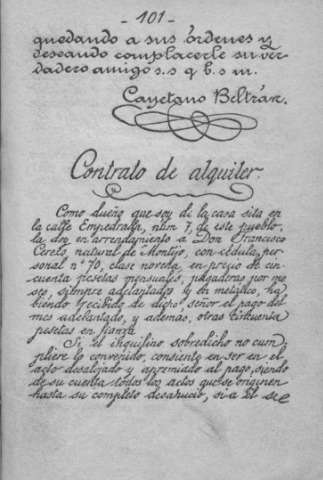 - 101 -
quedando a sus órdenes y
deseando complacerle su ver-
dadero amigo s.s q b. s m.
Cayetano Beltrán.
Contrato de alquiler.
Como dueño que soy de la casa sita en
la calle Empedrada, núm 7, de este pueblo,
la doy en arrendamiento a Don Francisco
Cerelo, natural de Montijo, con cédula per-
sonal nº 70, clase novena, en precio de cin-
cuenta pesetas mensuales, pagaderas por me-
ses, siempre adelantado y en metálico, ha-
biendo recibido de dicho señor el pago del
mes adelantado, y además, otras cincuenta
pesetas en fianza.
Si el inquilino sobredicho no cum-
pliere lo convenido, consiente en ser en el
acto desalojado y apremiado al pago, siendo
de su cuenta todos los actos que se originen
hasta su completo desahucio, si a él se